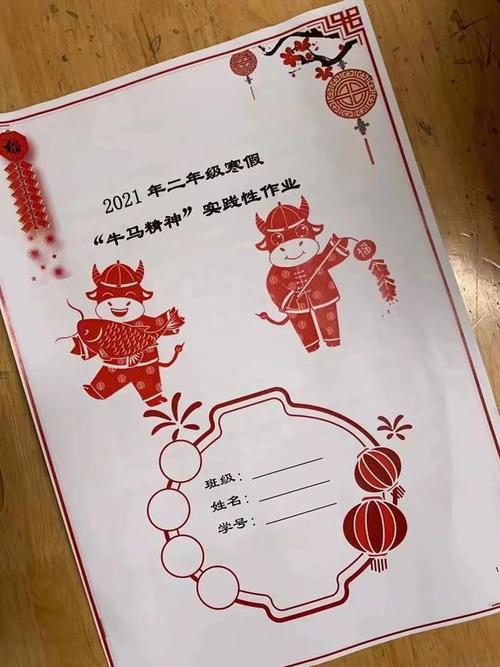 2021 年二年级寒假
“牛马精神”实践性作业
福
福
班级：
姓名：
学号：